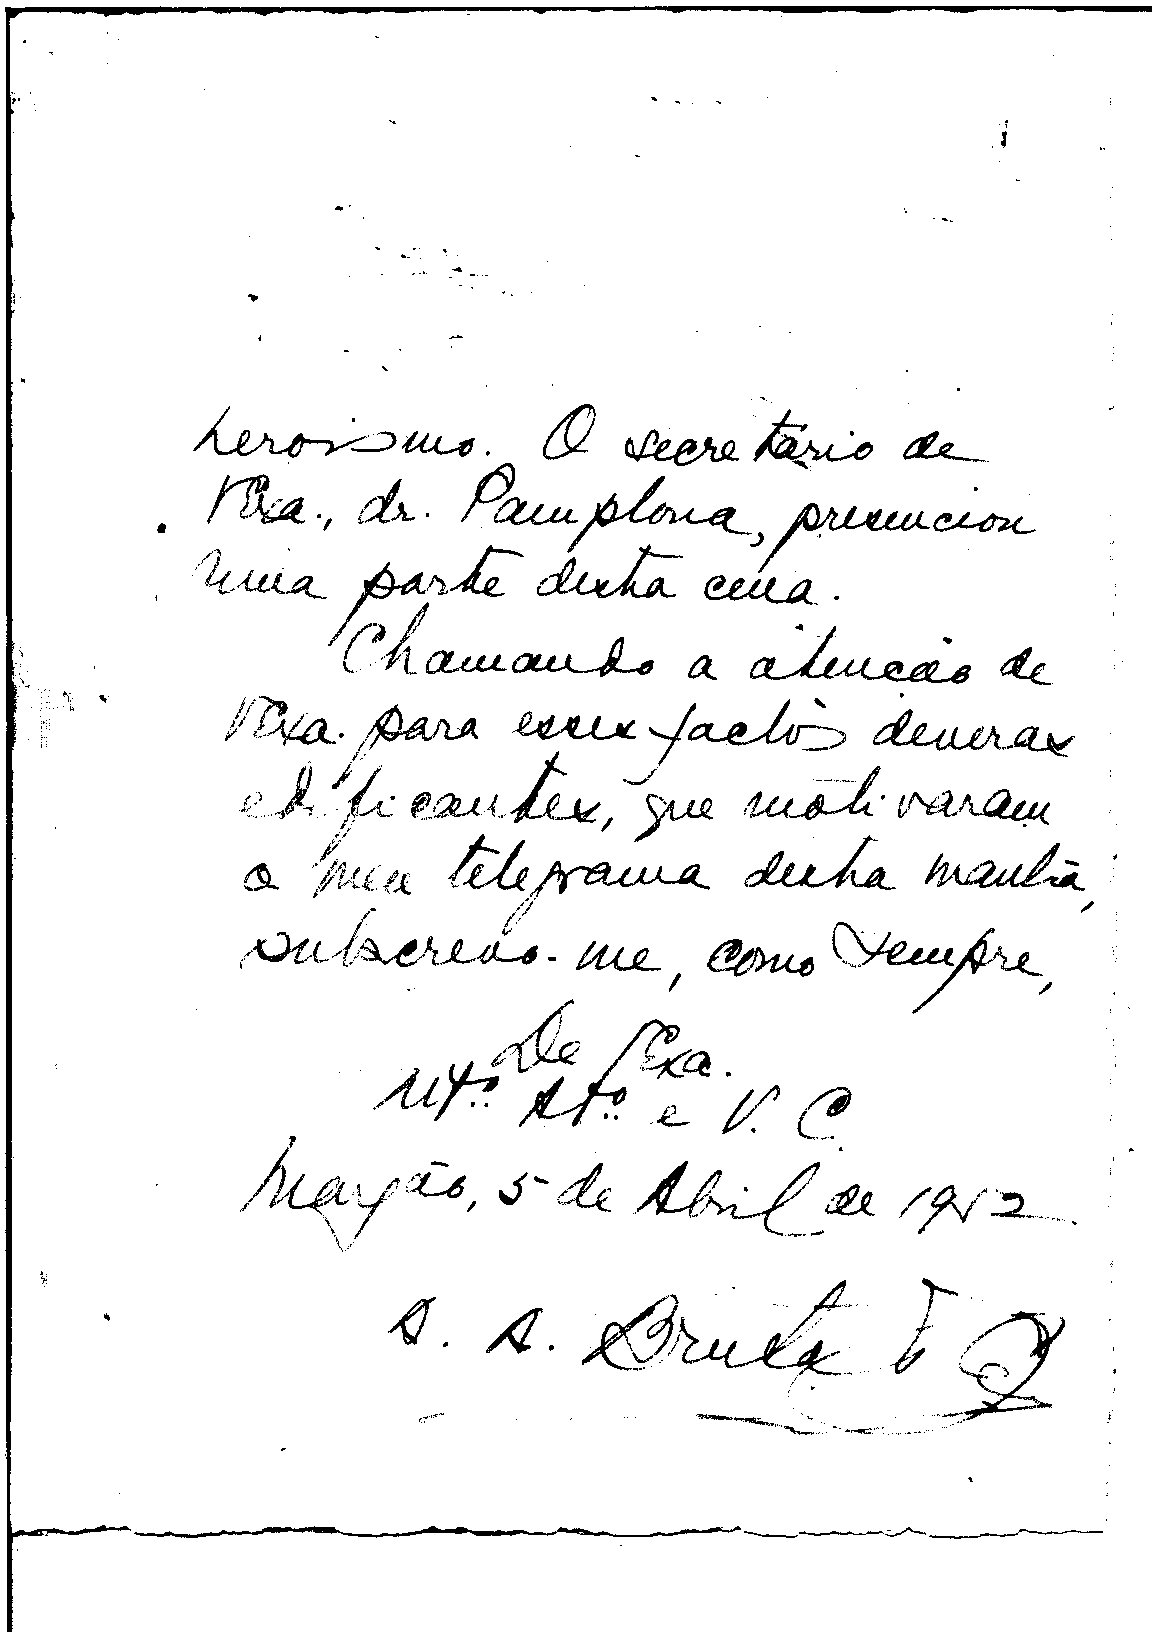 heroismo. O secretário de
VExa., dr. Pamplona, presenciou
uma parte desta cena.
Chamando a atenção de
VExa. para esses factos deveras
edificantes, que motivaram
o meu telegrama desta manhã,
subscrevo-me, como sempre,
De VExa.
Mto. Ato. e V. C.
Margão, 5 de Abril de 1952
A. A. Bruto